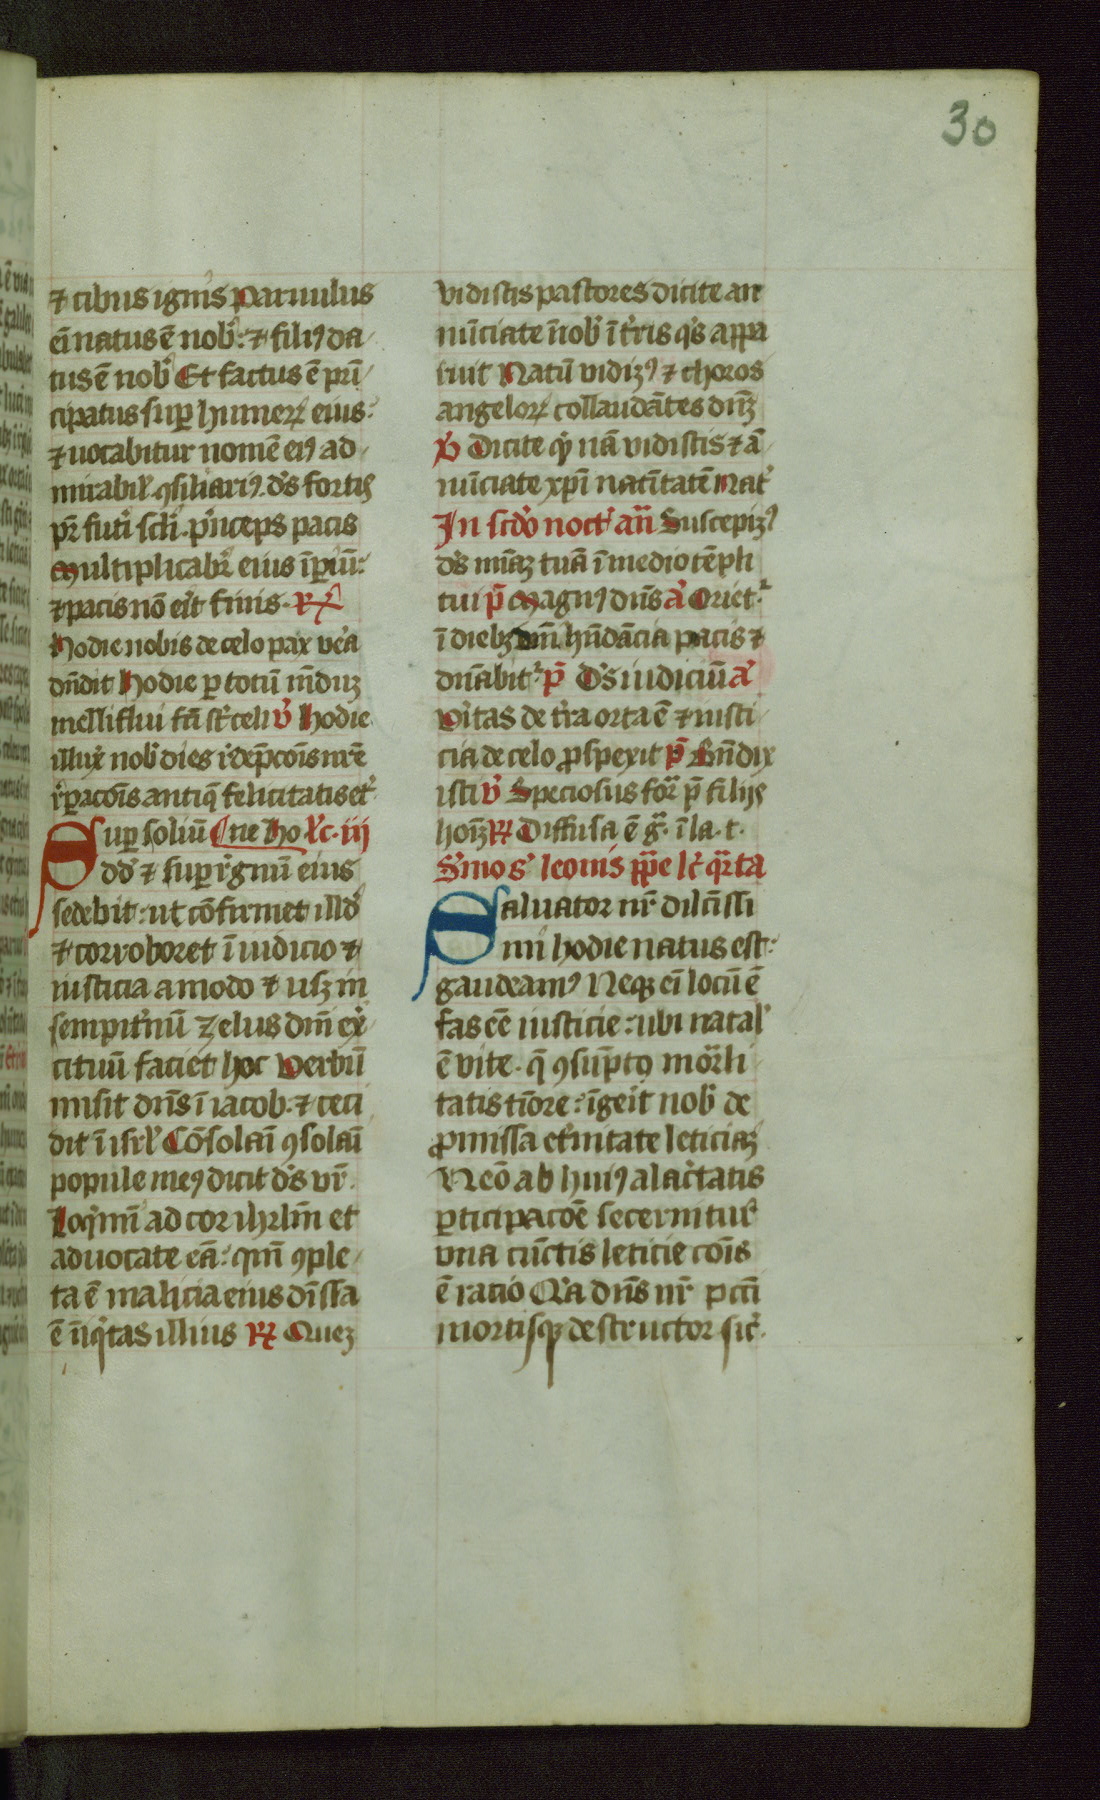 30
⁊ cibus ignis Paruulus
ei̅ natus e̅ nob̾: ⁊ filiꝯ da
tus e̅ nob̾ Et factus e̅ pri̅
cipatus sup̲ humeꝝ eius:
⁊ uocabitur nome̅ eiꝯ ad
mirabil̾ ꝯsiliariꝯ. d̅s fortis
pr̅ futi̾ scl̾i. pͥnceps pacis
Multiplicabr̾ eius i̅piu̅:
⁊ pacis no̅ erit finis. R̸
Hodie nobis de celo pax ue̾a
dn̅dit Hodie ꝑ totu̅ mu̅duꝫ
melliflui fc̅i st̾ celi V̸ Hodie
illuxͭ nob̾ dies r̾dep̅co̅is nr̅e
r̾ꝑaco̅is antiq̅ felicitatis et̾
Sup̲ soliu̅ Cͥne ho lc̅. iij
dd̾ ⁊ sup̲ r̾gnu̅ eius
sedebit: ut co̅firmet illd̾
⁊ corroboret i̅ iudicio ⁊
iusticia amodo ⁊ usꝫ in
sempit̾nu̅ Zelus dn̅i ex̾
cituu̅ faciet hoc Verbu̅
misit dn̅s i̅ iacob. ⁊ ceci
dit i̅ isrl̾ Co̅solai̅ ꝯsolai̅
popule meꝯ dicit d̅s vr̅.
Loqͥmi̅ ad cor ihrlm̅ et
aduocate ea̅: qm̅ ꝯple
ta e̅ malicia eius di̅ssa
e̅ iniqͥtas illius R̸ Queꝫ
vidistis pastores dicite an
nu̅ciate n̅ob̾ i̅ t̾ris qͥs appa
ruit Natu̅ vidimꝯ ⁊ choros
angeloꝝ collauda̅tes dn̅ꝫ
V̸ Dicite qͥ na̅ vidistis ⁊ a̅
nu̅ciate xp̅i nati̅tate̅ Nat̾
In scd̾o noct̾ an̅ Suscepimꝯ
d̅s mi̅aꝫ tua̅ i̅ medio te̅pli
tui p̅ Magnꝯ dn̅s a̾ Oriet̾
i̅ diebꝫ dn̅i hu̅da̅cia pacis ⁊
dn̅abit̾ p̅ D̅s iudiciu̅ a̾
Ve̾itas de t̾ra orta e̅ ⁊ iusti
cia de celo ꝓspexit p̅ Bn̅dix
isti V̸ Speciosus for̅ p̅ filijs
ho̅iꝫ R̸ Diffusa e̅ gr̅. i̅ la. t.
S̾mo s̾ leonis pp̅e lc̾ qͣrta
Saluator nr̅ dilc̅issi
mi hodie natus est:
gaudeamꝯ Neqꝫ ei̅ locu̅ e̅
fas ee̅ iusticie: ubi natal̾
e̅ vite. q̅ ꝯsu̅pto mor̅li
tatis ti̅ore: i̅gerit nob̾ de
ꝓmissa et̾nitate leticiaꝫ
Neo̅ ab huiꝯ alac̾itatis
ꝑticipaco̅e secernitur
vna cu̅ctis leticie co̅is
e̅ racio Qͥa dn̅s nr̅ pcc̅i
mortisqꝫ destructor. sic̾